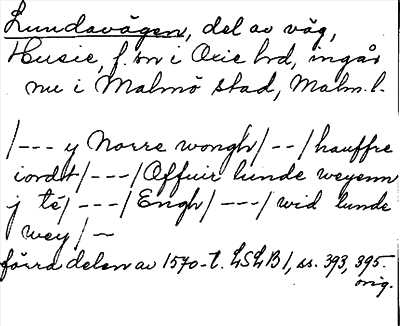 Lundavägen, del av väg,
Husie, f. sn i Oxie hd, ingår
nu i Malmö stad, Malm. l.
/--- y Norre wongh/--/hauffre
iordt/---/Offuir lunde weyenn
j té/---/Engh/---/wid lunde
wey/—
förra delen av 1570-t. LSLB 1, ss. 393, 395.
orig.